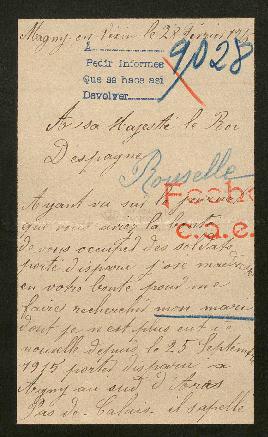 Magny en Vexin le 28 février 191
A
Pedir Informes
Que se hace así
Devolver
9028
A sa Majesté le Roi
Despagne
Rouselle
Fecha
c.a.e.
Ayant vu sur le
que vous avez la bonté
de vous occuper des soldats
porté disparu j'ose
en votre bonté pour me
faire rechercher mon mari
dont je n'est plus eut de
nouvelle depuis le 25 Septem
1915 porter disparu a
Acgny au sud d'Arras
Pas de Calais. il sapelle